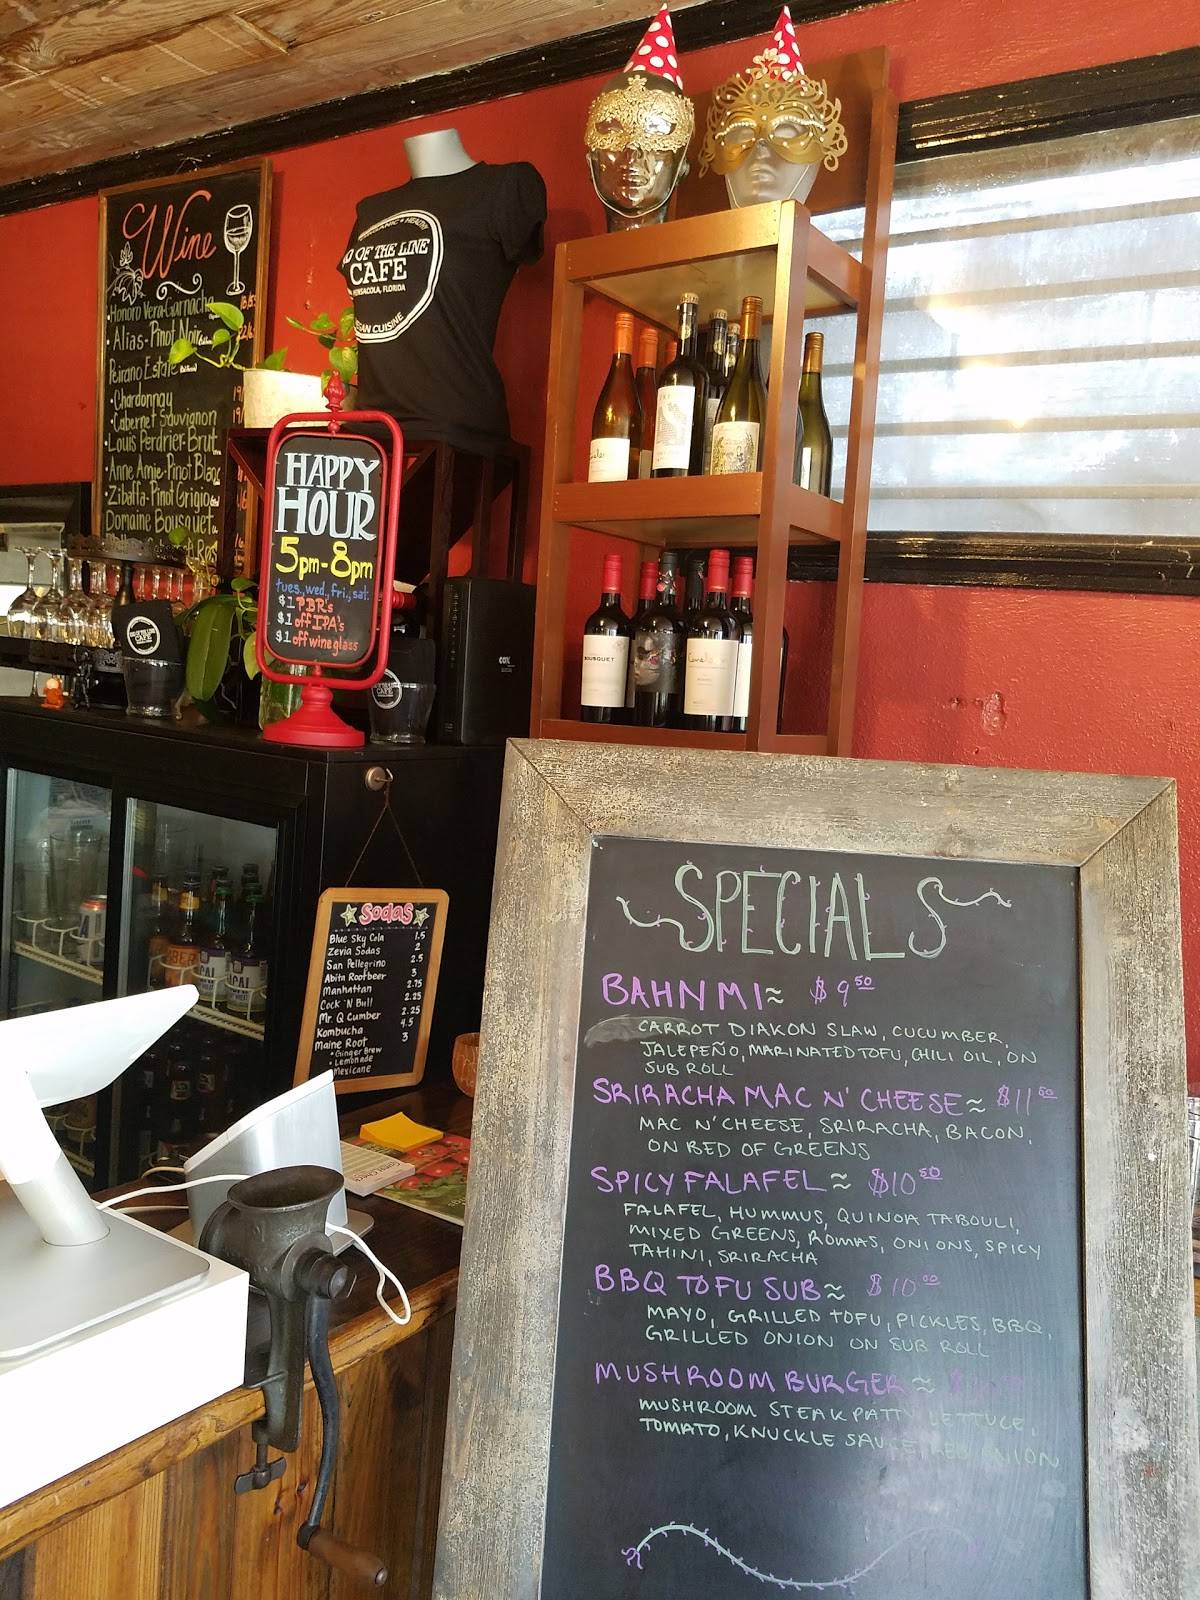 Wine
Honoro Vera-Garnacha
Alias-Pinot Noir
Peirano Estate
Chardonnay
Cabernet Sauvignon
Louis Perdrier-Brut
Anne Amie-Pinot Blanc
Zibaffa-Pinot Grigio
Domaine Bousquet
OF THE LINE
CAFE
PENSACOLA, FLORIDA
CUISINE
HAPPY
HOUR
5pm-8pm
tues., wed., fri., sat.
$1 PBR's
$1 off IPA's
$1 off wine glass
BOUSQUET
COX
Sodas
Blue Sky Cola 1.5
Zevia Sodas 2
San Pellegrino 2.5
Abita Rootbeer 3
Manhattan 2.75
Cock 'N Bull 2.25
Mr. Q Cumber 2.25
Kombucha 4.5
Maine Root 3
• Ginger Brew
• Lemonade
• Mexicane
SPECIALS
BAHN MI ≈ $9.50
CARROT DIAKON SLAW, CUCUMBER,
JALEPEÑO, MARINATED TOFU, CHILI OIL, ON
SUB ROLL
SRIRACHA MAC N' CHEESE ≈ $11.50
MAC N' CHEESE, SRIRACHA, BACON,
ON BED OF GREENS
SPICY FALAFEL ≈ $10.50
FALAFEL, HUMMUS, QUINOA TABOULI,
MIXED GREENS, ROMAS, ONIONS, SPICY
TAHINI, SRIRACHA
BBQ TOFU SUB ≈ $10.00
MAYO, GRILLED TOFU, PICKLES, BBQ,
GRILLED ONION ON SUB ROLL
MUSHROOM BURGER ≈
MUSHROOM STEAK PATTY, LETTUCE,
TOMATO, KNUCKLE SAUCE, RED ONION